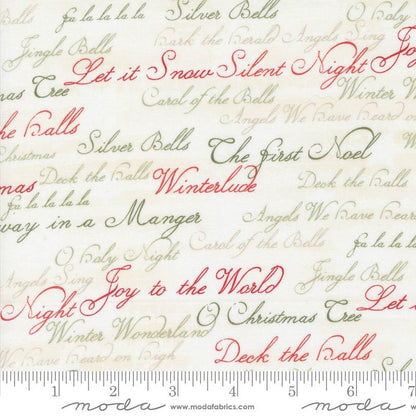 fa la la la la Silver Bells O Holy
Jingle Bells Hark the Herald Angels Sing
Let it Snow Silent Night Joy
mas Tree Carol of the Bells Winter W
the Halls Angels We have heard on
Christmas Silver Bells The First Noel
mas Deck the Halls Winterlude Deck the Halls
fa la la la la
way in a Manger Angels We have hear
O Holy Night Carol of the Bells fa la la la
Angels Sing Joy to the World Jingle Bells
Night O Christmas Tree Let it
Winter Wonderland
We have heard on high Deck the Halls
1 2 3 4 5 6 7
moda www.modafabrics.com moda